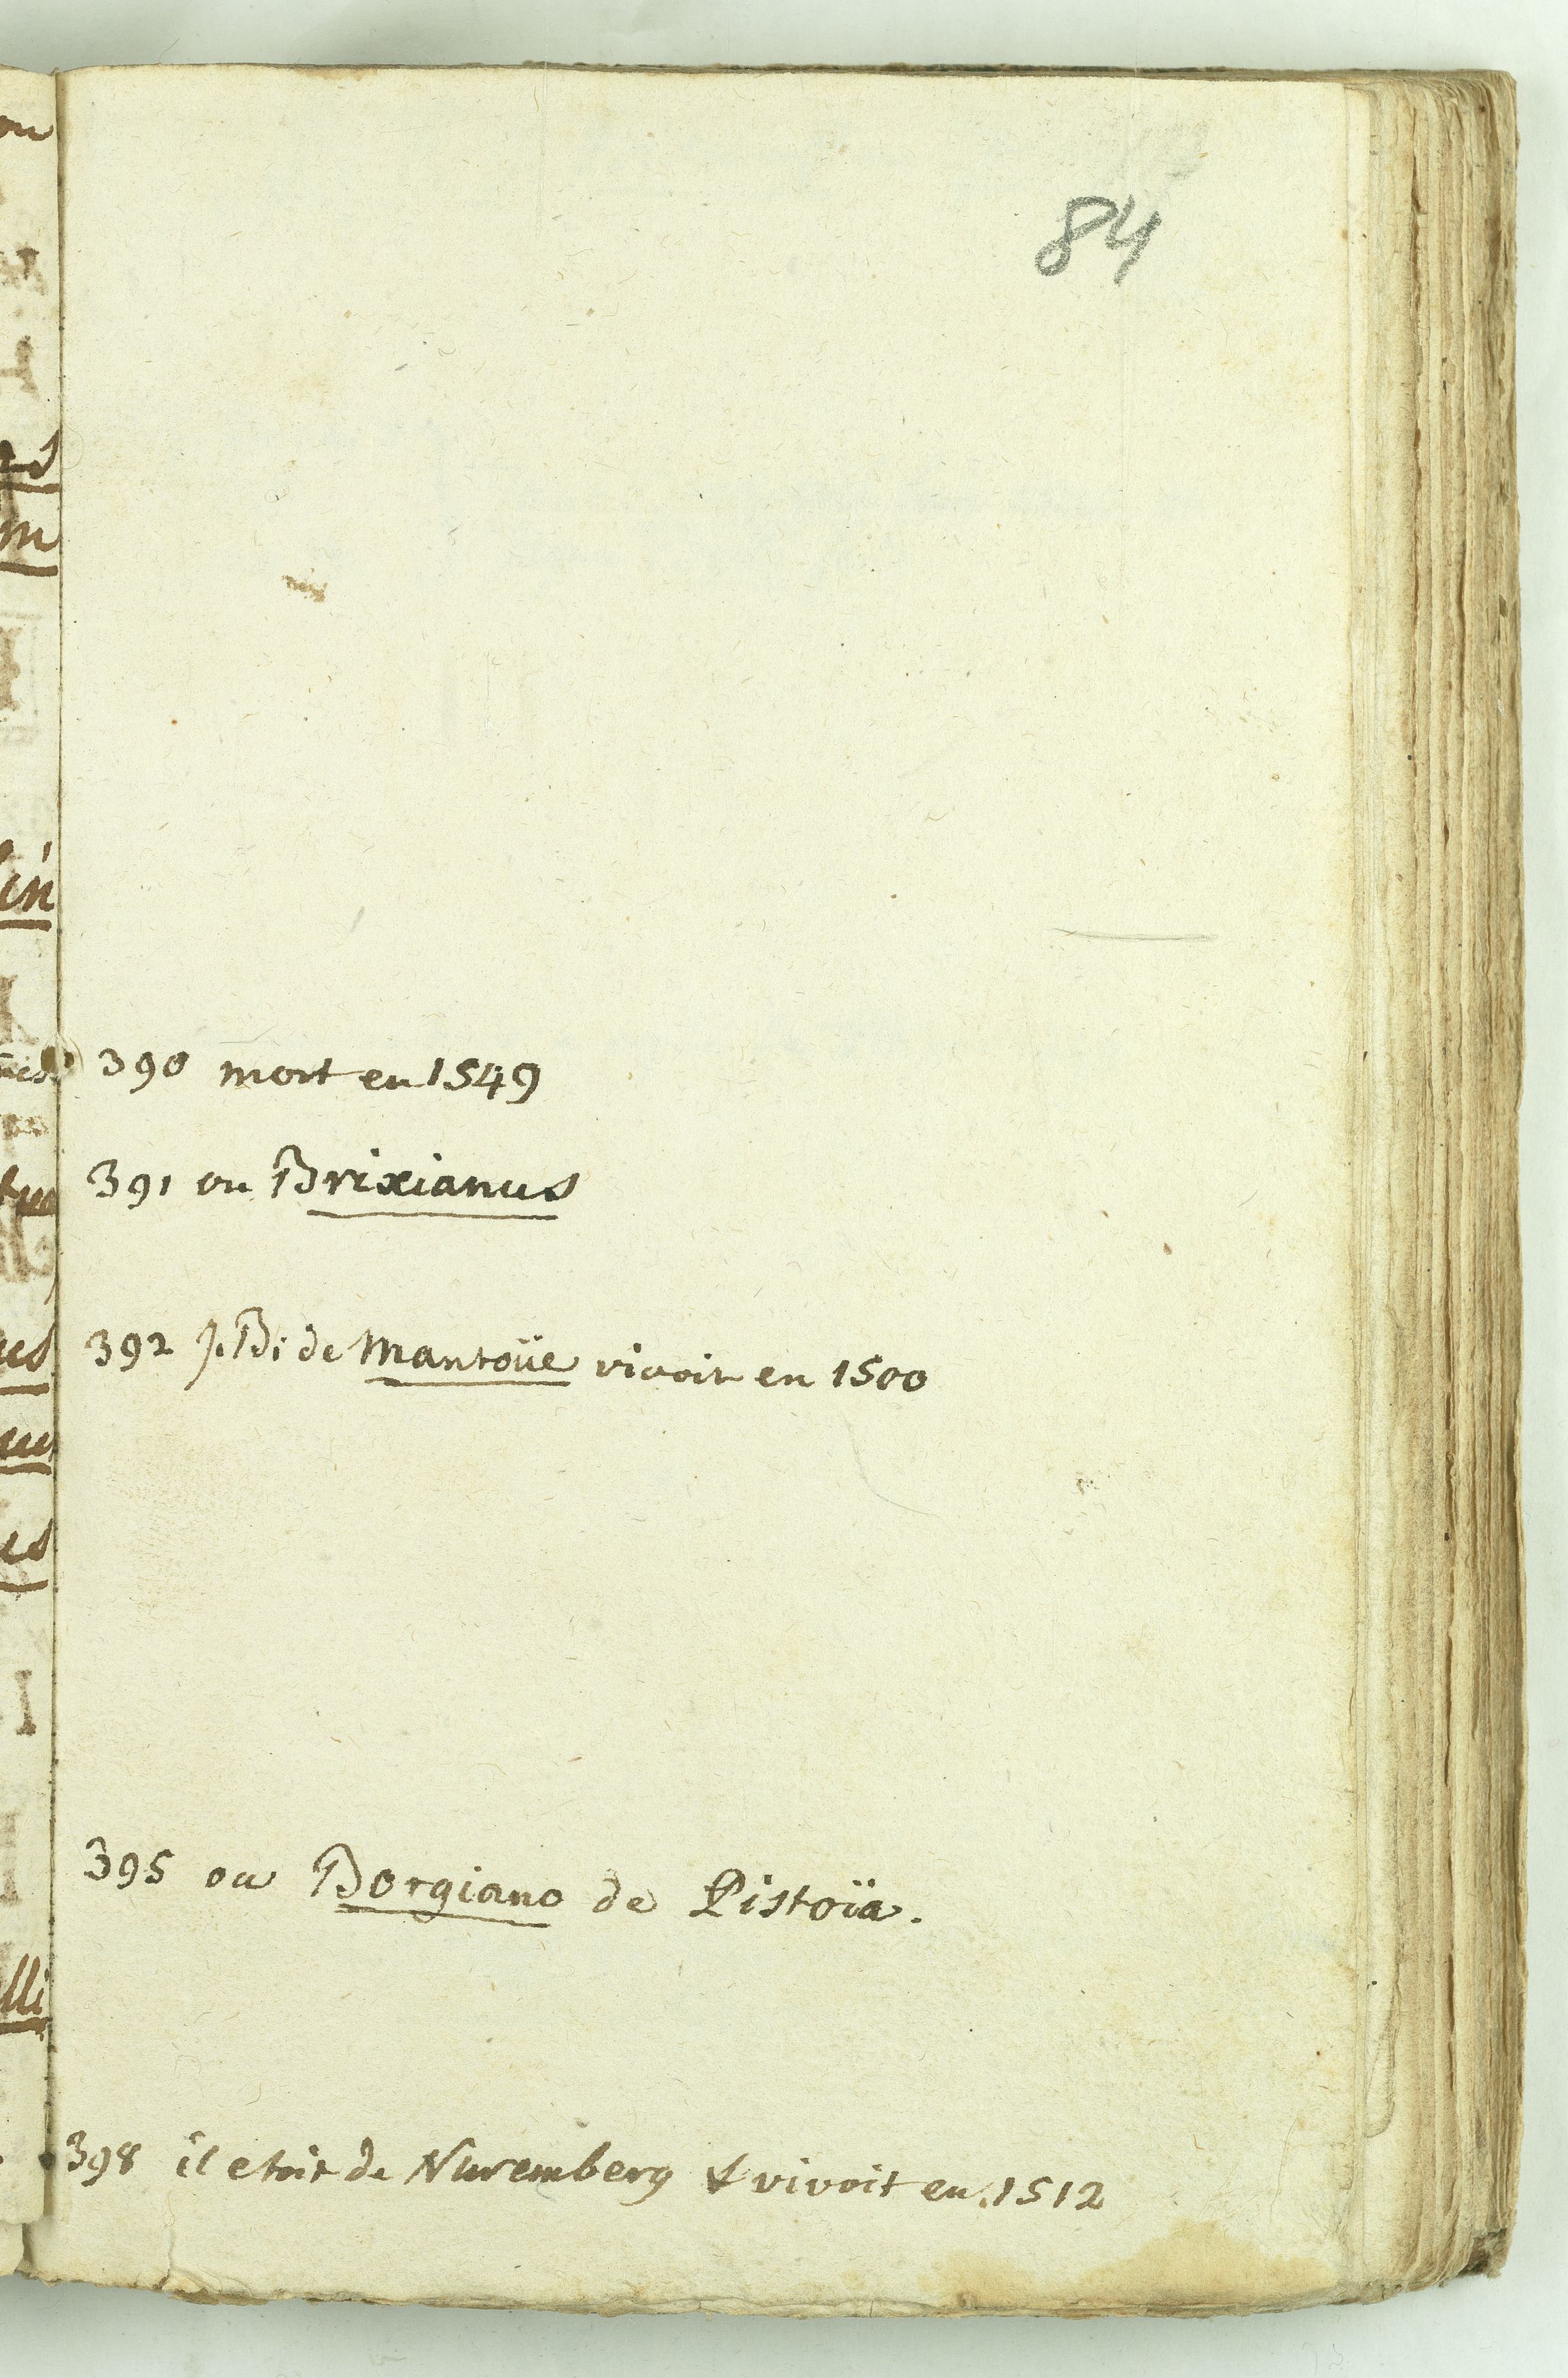 84
390 mort en 1549
391 ou Brixianus
392 J. B. de Mantoüe vivoit en 1500
395 ou Borgiano de Pistoïa.
398 il etoit de Nuremberg & vivoit en 1512